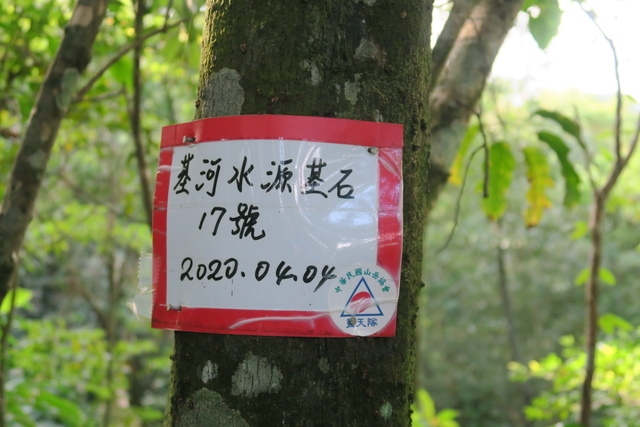 基河水源基石
17號
2020.04.04
中華民國山岳協會
藍天隊